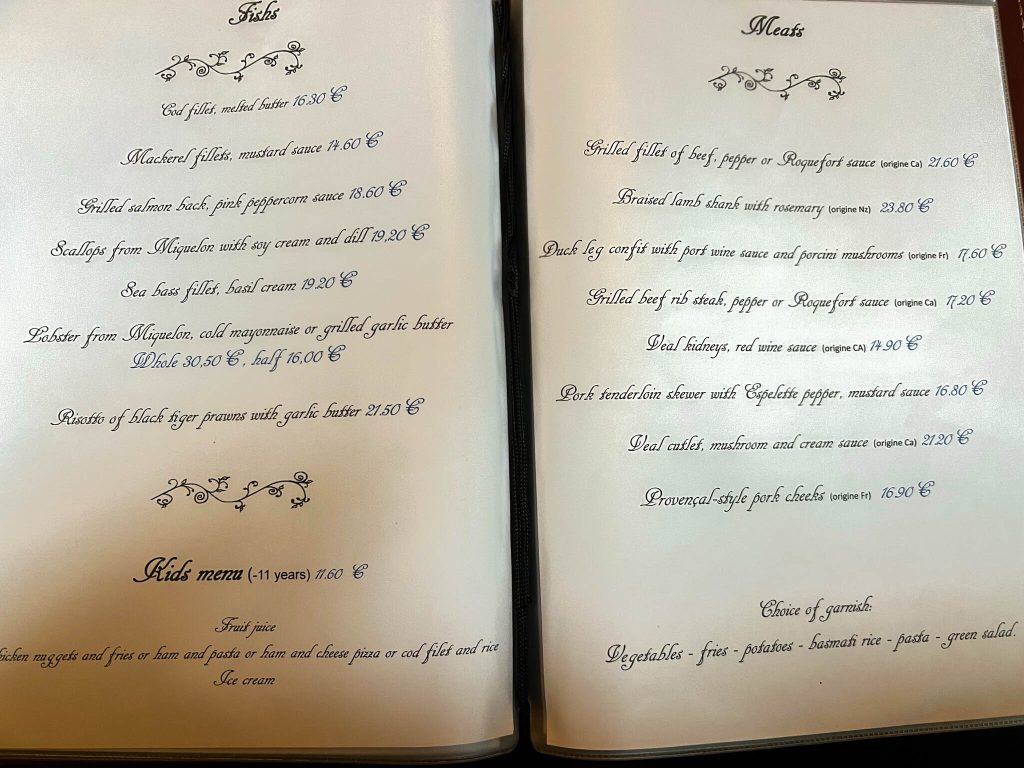 Fishs
Cod fillet, melted butter 16.30 €
Mackerel fillets, mustard sauce 14.60 €
Grilled salmon back, pink peppercorn sauce 18.60 €
Scallops from Miquelon with soy cream and dill 19,20 €
Sea bass fillet, basil cream 19.20 €
Lobster from Miquelon, cold mayonnaise or grilled garlic butter
Whole 30,50 €, half 16,00 €
Risotto of black tiger prawns with garlic butter 21.50 €
Kids menu (-11 years) 11.60 €
Fruit juice
hicken nuggets and fries or ham and pasta or ham and cheese pizza or cod filet and rice
Ice cream
Meats
Grilled fillet of beef, pepper or Roquefort sauce (origine Ca) 21.60 €
Braised lamb shank with rosemary (origine Nz) 23.80 €
Duck leg confit with port wine sauce and porcini mushrooms (origine Fr) 17.60 €
Grilled beef rib steak, pepper or Roquefort sauce (origine Ca) 17.20 €
Veal kidneys, red wine sauce (origine CA) 14.90 €
Pork tenderloin skewer with Espelette pepper, mustard sauce 16.80 €
Veal cutlet, mushroom and cream sauce (origine Ca) 21.20 €
Provençal-style pork cheeks (origine Fr) 16.90 €
Choice of garnish:
Vegetables - fries - potatoes - basmati rice - pasta - green salad.